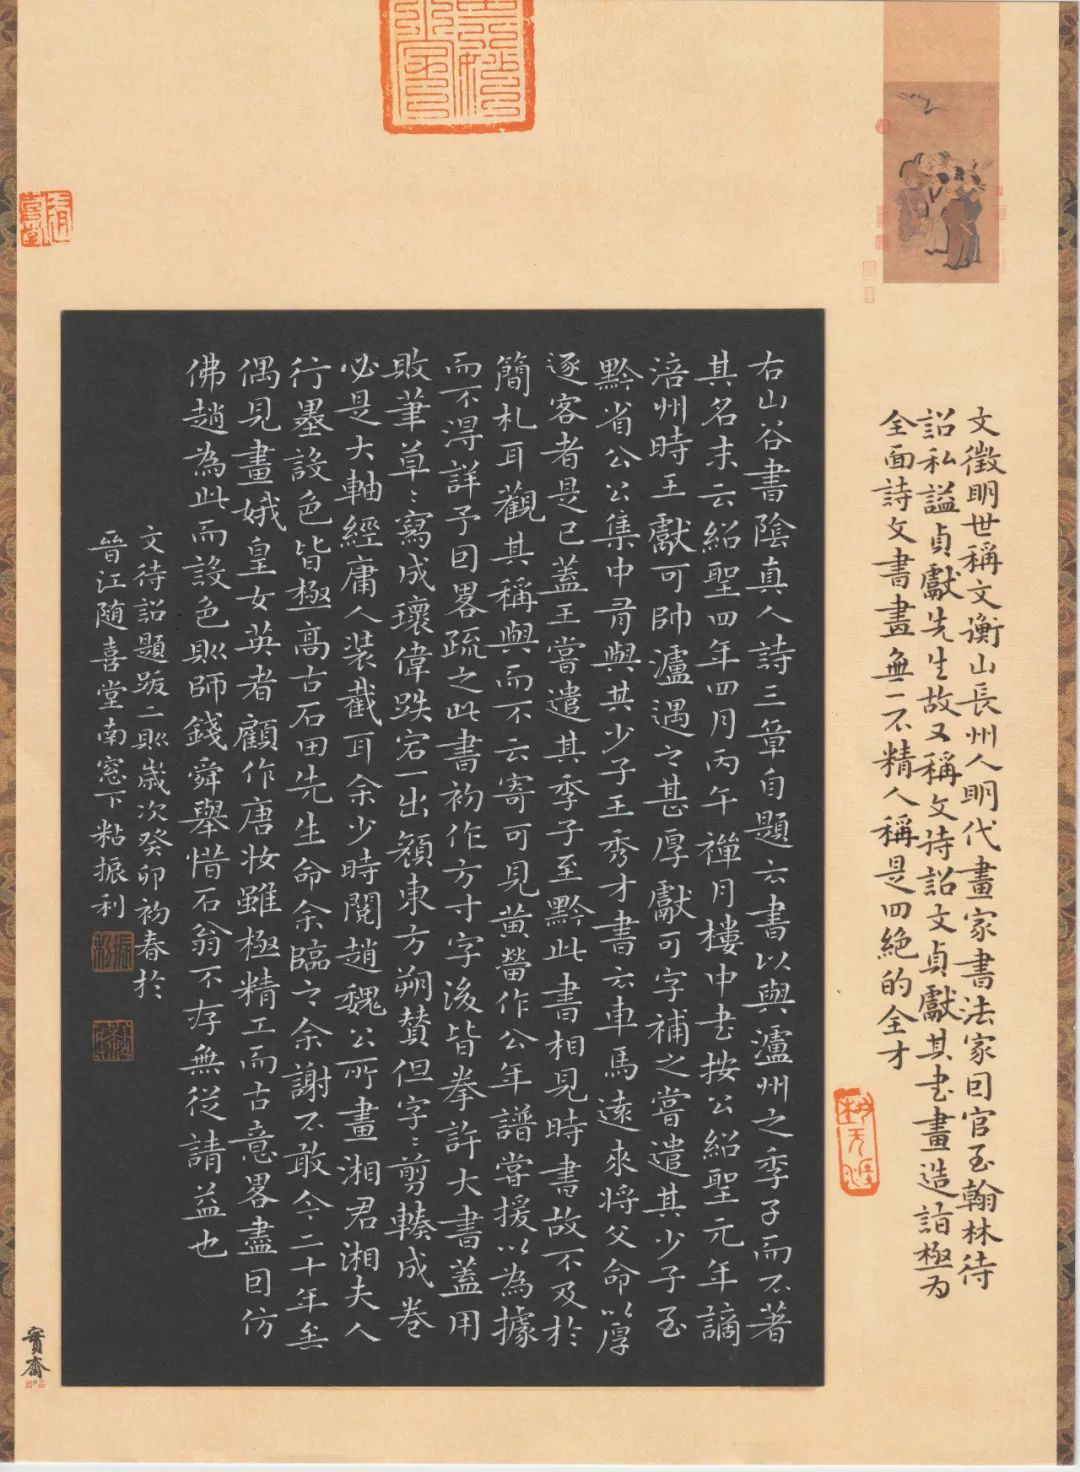 文徵明世稱文衡山長州人明代畫家書法家曰官至翰林待
詔私謚貞獻先生故又稱文待詔文貞獻其书畫造詣極为
全面詩文書畫無一不精人稱是四絶的全才
右山谷書陰真人詩三章自題云書以與瀘州之季子而不著
其名末云紹聖四年四月丙午禪月樓中书按公紹聖元年謫
涪州時王獻可帥瀘遇之甚厚獻可字補之嘗遣其少子至
黔省公公集中有與其少子王秀才書云車馬遠來将父命以厚
逐客者是已蓋王嘗遣其季子至黔此書相見時書故不及於
簡札耳觀其稱與而不云寄可見黄㽦作公年譜嘗援以為據
而不得詳予因畧疏之此書初作方寸字後皆拳許大書蓋用
敗筆草〻寫成瓌偉跌宕一出顔東方朔贊但字〻剪輳成卷
必是大軸經庸人装截耳余少時閲趙魏公所畫湘君湘夫人
行墨設色皆極高古石田先生命余臨之余謝不敢今二十年矣
偶見畫娥皇女英者顧作唐妆雖極精工而古意畧盡因仿
佛趙為此而設色則師錢舜舉惜石翁不存無從請益也
文待詔題跋二則歲次癸卯初春於
晉江随喜堂南窓下粘振利
寳齋
出品